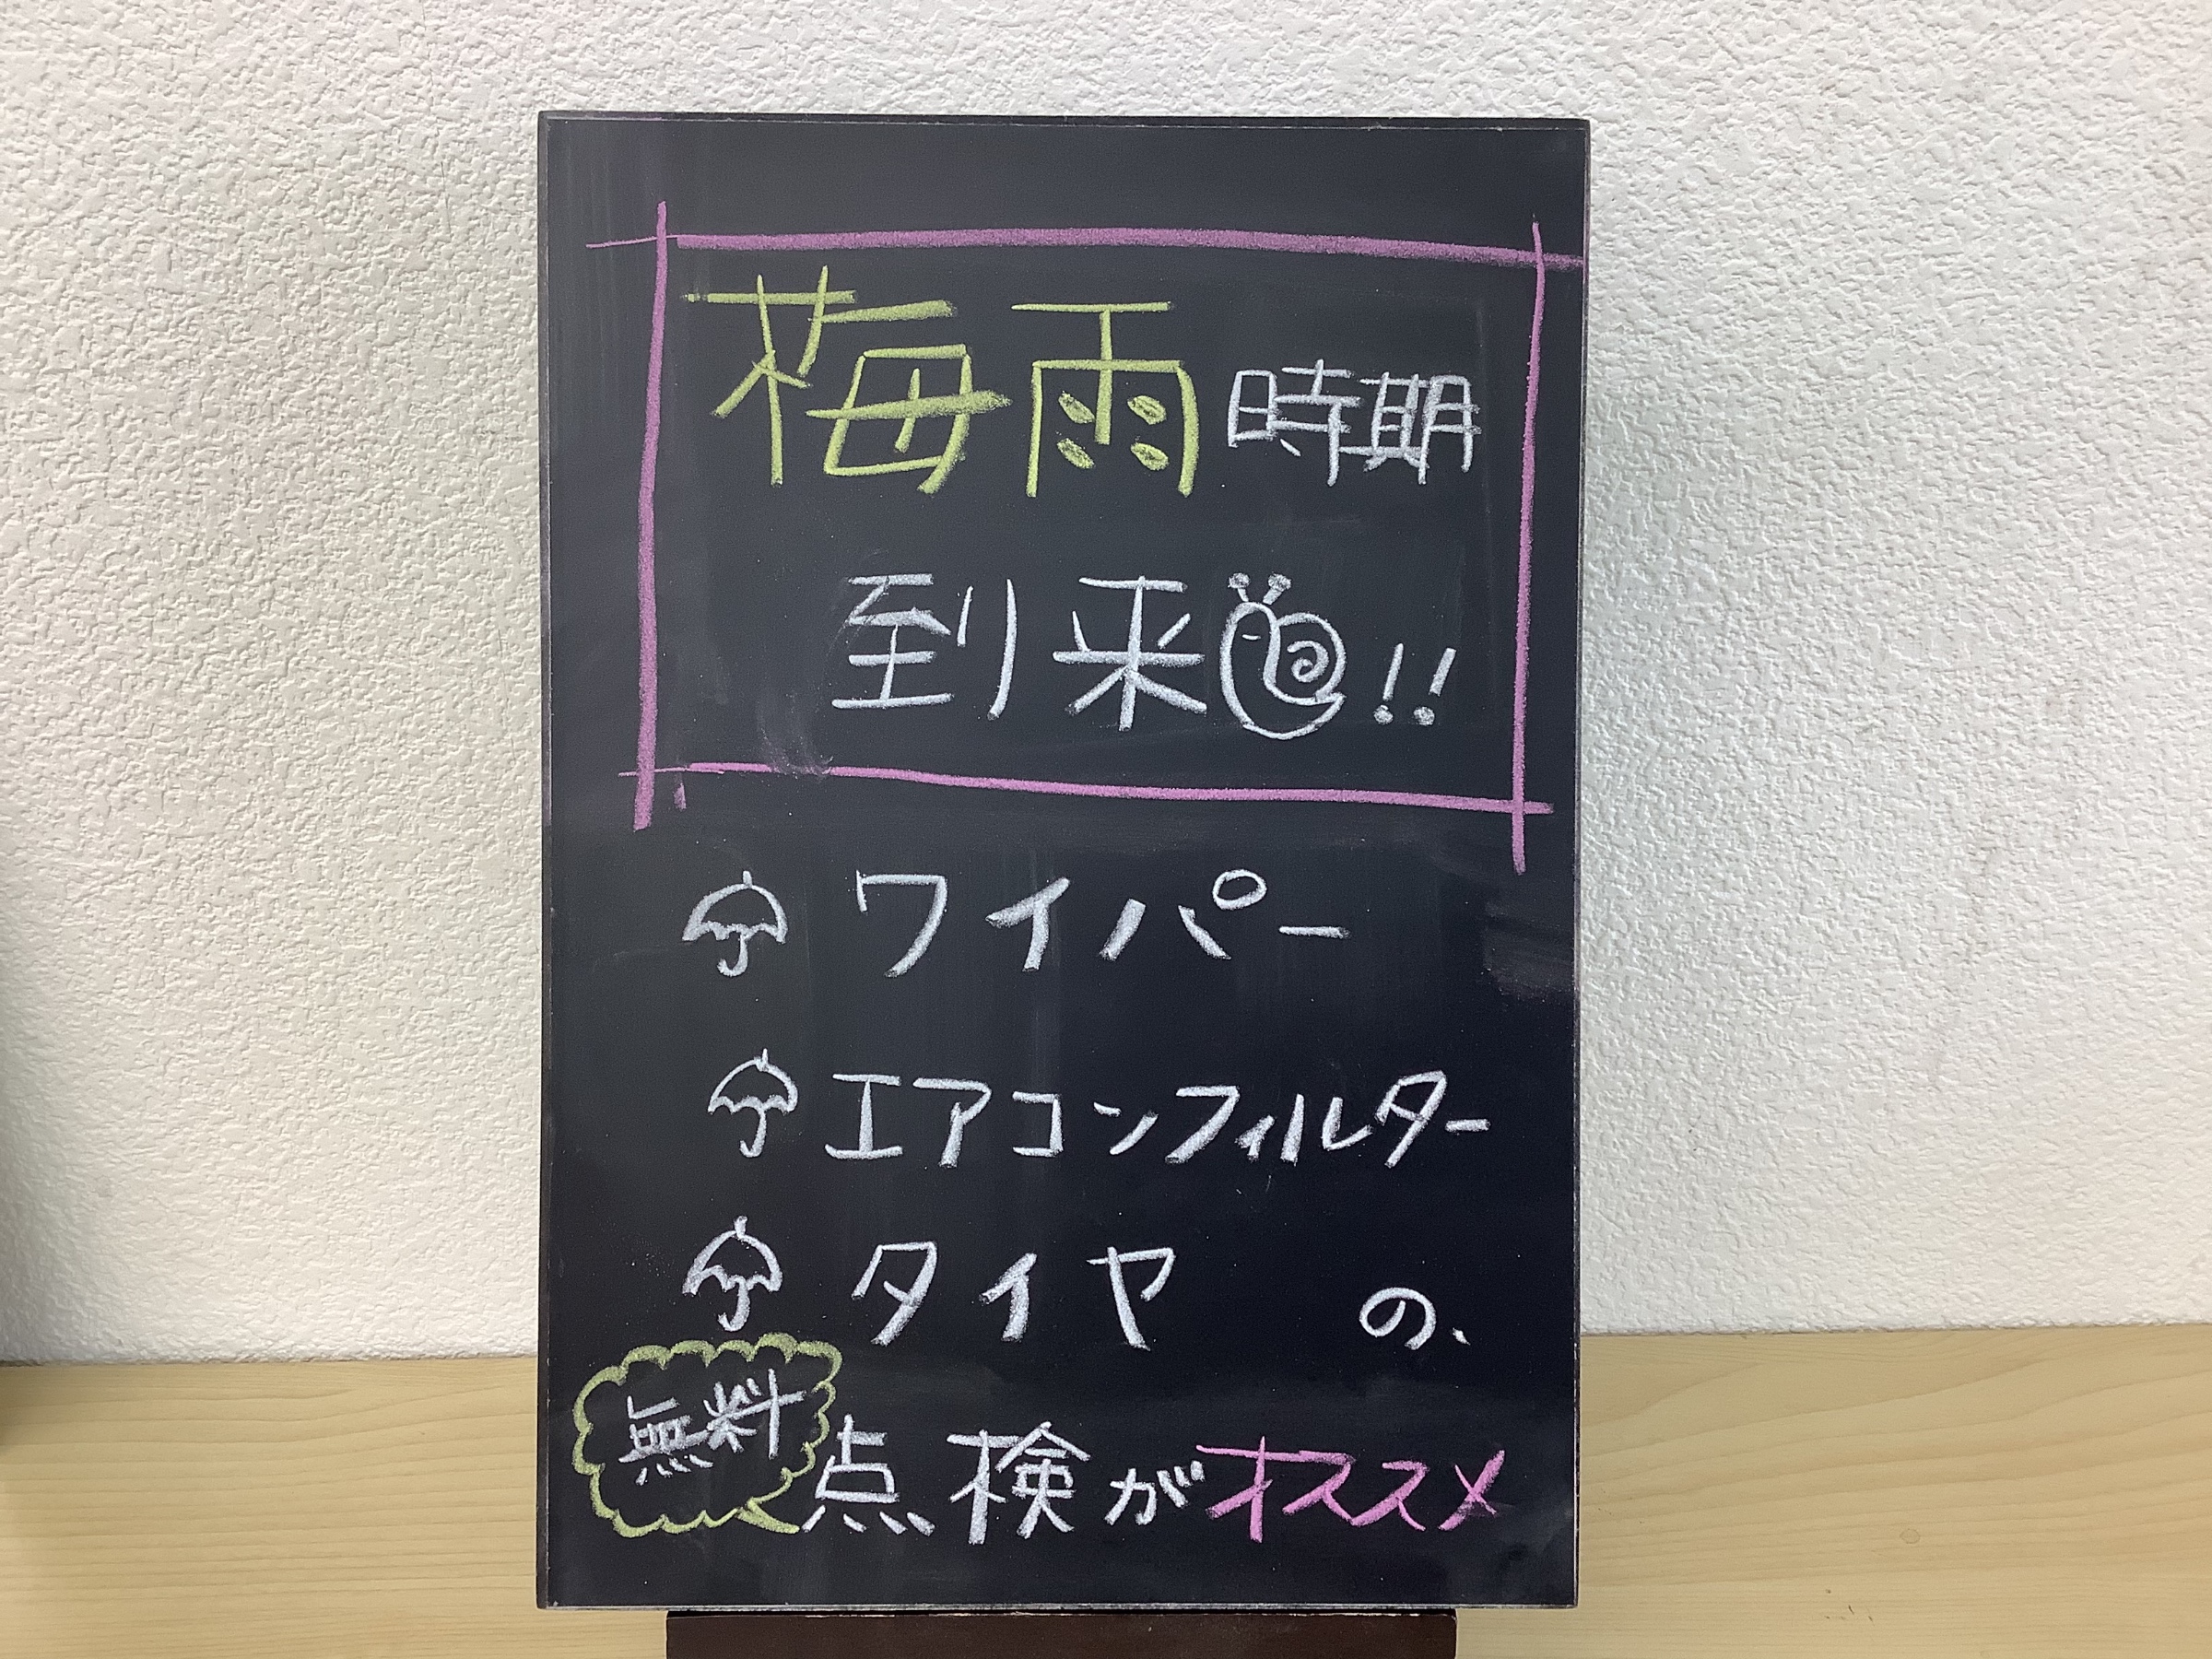 梅雨時期
到来!!
ワイパー
エアコンフィルター
タイヤ の、
無料
点検がオススメ